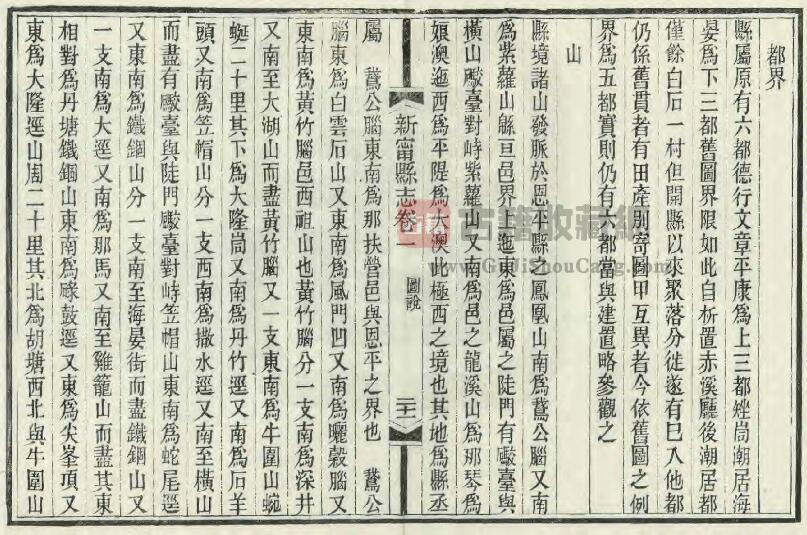 都界
縣屬原有六都德行文章平康爲上三都矬峒潮居海
晏爲下三都舊圖界限如此自析置赤溪廳後潮居都
僅餘白石一村但開縣以來聚落分徙遂有巳入他都
仍係舊貫者有田產別寄圖甲互異者今依舊圖之例
界爲五都實則仍有六都當與建置略參觀之
山
縣境諸山發脈於恩平縣之鳳凰山南爲鵞公腦又南
爲紫蘿山緜亘邑界上迤東爲邑屬之陡門有礮臺與
橫山礮臺對峙紫蘿山又南爲邑之龍溪山爲那琴爲
娘澳迤西爲平隄爲大澳此極西之境也其地爲縣丞
新甯縣志卷一
圖說
二十一
古籍收藏網
www.GuJiShouCang.com
屬 鵞公腦東南爲那扶營邑與恩平之界也 鵞公
腦東爲白雲石山又東南爲風門凹又南爲曬穀腦又
東南爲黃竹腦邑西祖山也黃竹腦分一支南爲深井
又南至大湖山而盡黃竹腦又一支東南爲牛圍山蜿
蜒二十里其下爲大隆峝又南爲丹竹逕又南爲石羊
頭又南爲笠帽山分一支西南爲撒水逕又南至橫山
而盡有礮臺與陡門礮臺對峙笠帽山東南爲蛇尾逕
又東南爲鐵錮山分一支南至海晏街而盡鐵錮山又
一支南爲大逕又南爲那馬又南至雞籠山而盡其東
相對爲丹塘鐵錮山東南爲碌鼓逕又東爲尖峯頂又
東爲大隆逕山周二十里其北爲胡塘西北與牛圍山